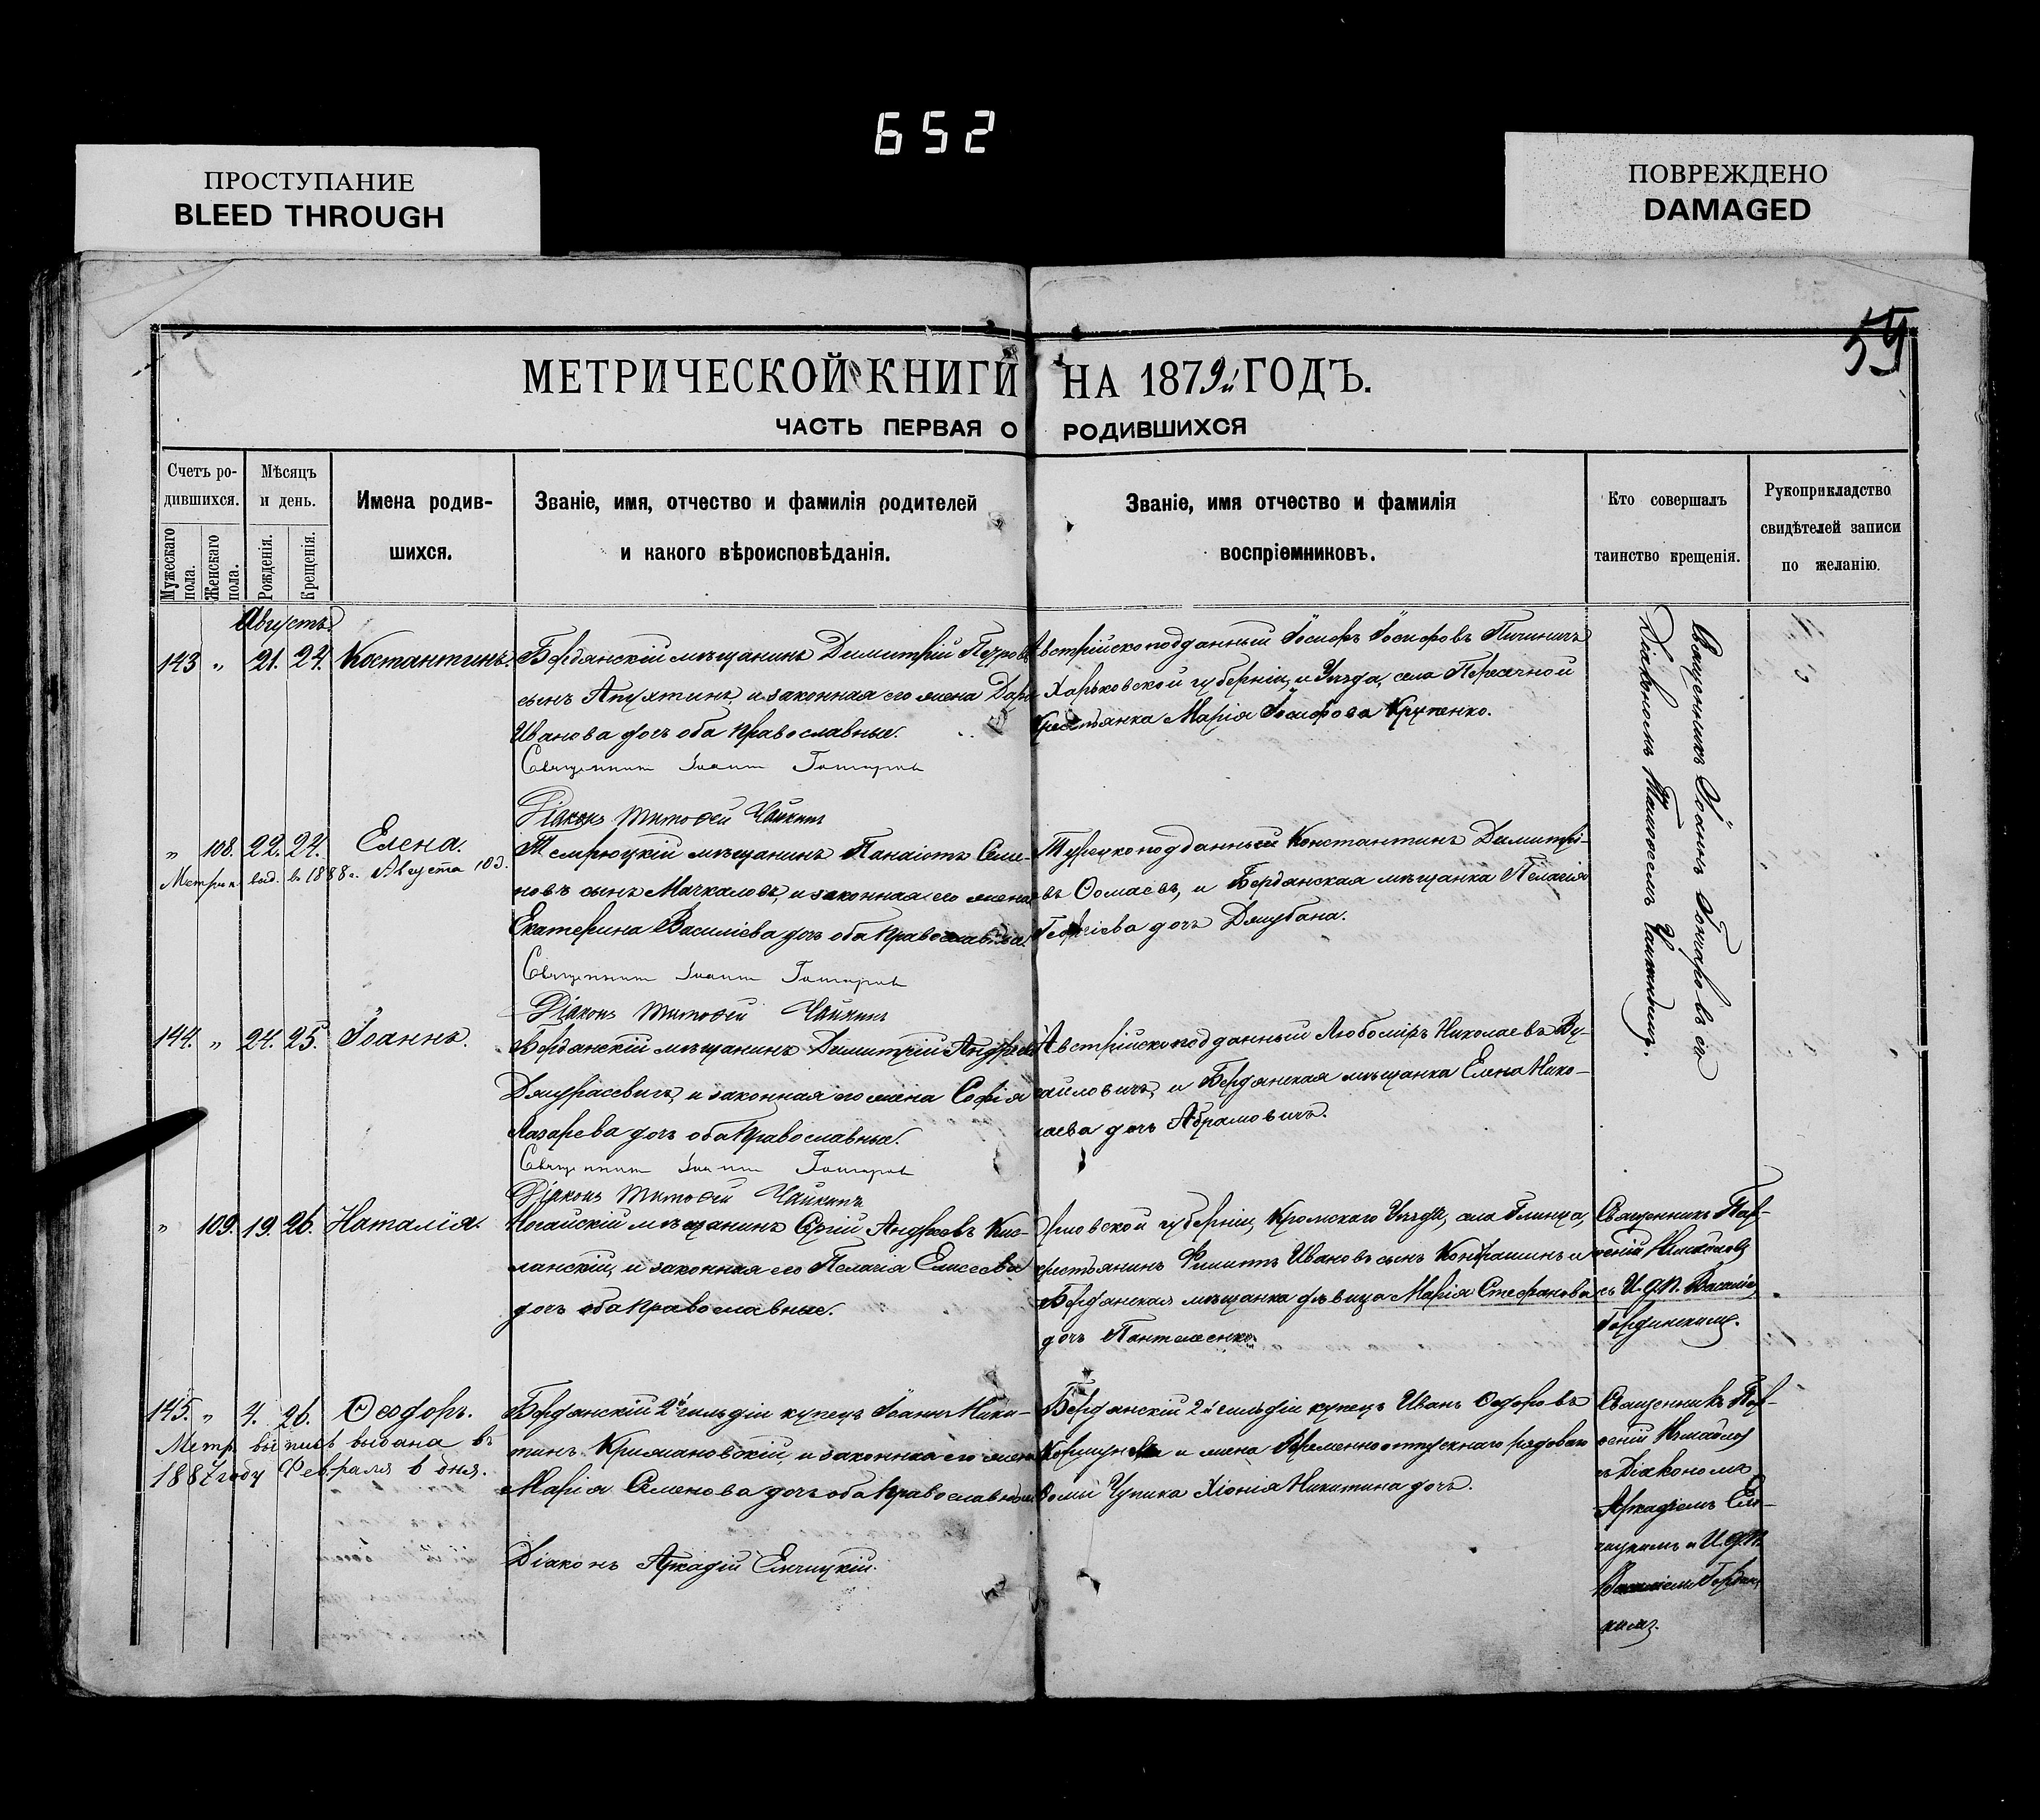 652
ПРОСТУПАНИЕ
BLEED THROUGH
ПОВРЕЖДЕНО
DAMAGED
59
МЕТРИЧЕСКОЙ КНИГИ НА 1879й ГОДЪ.
ЧАСТЬ ПЕРВАЯ О РОДИВШИХСЯ
Счетъ ро-
дившихся.
Мужескаго пола.
Женскаго пола.
Мѣсяцъ
и день.
Рожденія.
Крещенія.
Имена родив-
шихся.
Званіе, имя, отчество и фамилія родителей
и какого вѣроисповѣданія.
Званіе, имя отчество и фамилія
воспріемниковъ.
Кто совершалъ
таинство крещенія.
Рукоприкладство
свидѣтелей записи
по желанію.
Августъ.
143 " 21. 24. Костантинъ.
Бердянскій мѣщанинъ Димитрій Петровъ
сынъ Апухтинъ, и законная его жена Дарія
Иванова дочь оба православные.
Священникъ Іоаннъ Гончаровъ
Діаконъ Тимофей Чайкинъ
Австрійскоподданный Іосифъ Іосифовъ
Харьковской губерніи, и Уѣзда, села Пересѣчной
Крестьянка Марія Іосифова
Священникъ Іоаннъ Гончаровъ съ
Діакономъ Тимофеемъ Чайкинымъ.
" 108. 22. 24. Елена.
Метрик. выд. въ 1888 г. Августа 10 д.
Темрюцкій мѣщанинъ Панаіотъ Симе-
новъ сынъ Мачкаловъ, и законная его жена
Екатерина Василіева дочь оба православные.
Священникъ Іоаннъ Гончаровъ
Діаконъ Тимофей Чайкинъ
Турецкоподданный Константинъ Димитрі-
въ и Бердянская мѣщанка Пелагія
Георгіева дочь
144. " 24. 25. Іоаннъ.
Бердянскій мѣщанинъ Димитрій Андреевъ
и законная его жена Софія
Лазарева дочь оба православные.
Священникъ Іоаннъ Гончаровъ
Діаконъ Тимофей Чайкинъ
Австрійскоподданный Любоміръ Николаевъ Ву-
и Бердянская мѣщанка Елена Нико-
лаева дочь Абрамовичъ.
" 109. 19. 26. Наталія.
Ногайскій мѣщанинъ Сергій Андреевъ Кис-
ланскій, и законная его Пелагія Елисеева
дочь оба православные.
Орловской губерніи, Кромскаго Уѣзда, села Глинца,
крестьянинъ Филиппъ Ивановъ сынъ Кондрашинъ и
Бердянская мѣщанка дѣвица Марія Стефанова
дочь Пантелеенко.
Священникъ Пар-
ѳеній
съ И. д. п. Василіе
145. " 4. 26. Ѳеодоръ.
Метр. выпись выдана въ
1887 году Февраля 6 дня.
Бердянскій 2й гильдіи купецъ Іоаннъ Ники-
тинъ Крижановскій, и законная его жена
Марія Семенова дочь оба православные
Діаконъ Аркадій Енчицкій.
Бердянскій 2й гильдіи купецъ Иванъ Ѳедоровъ
и жена Временноотпускнаго рядоваго
Ѳомы Чупика Хіонія Никитина дочь.
Священникъ Пар-
ѳеній
съ Діакономъ
Аркадіемъ Ен-
чицкимъ и И. д. п.